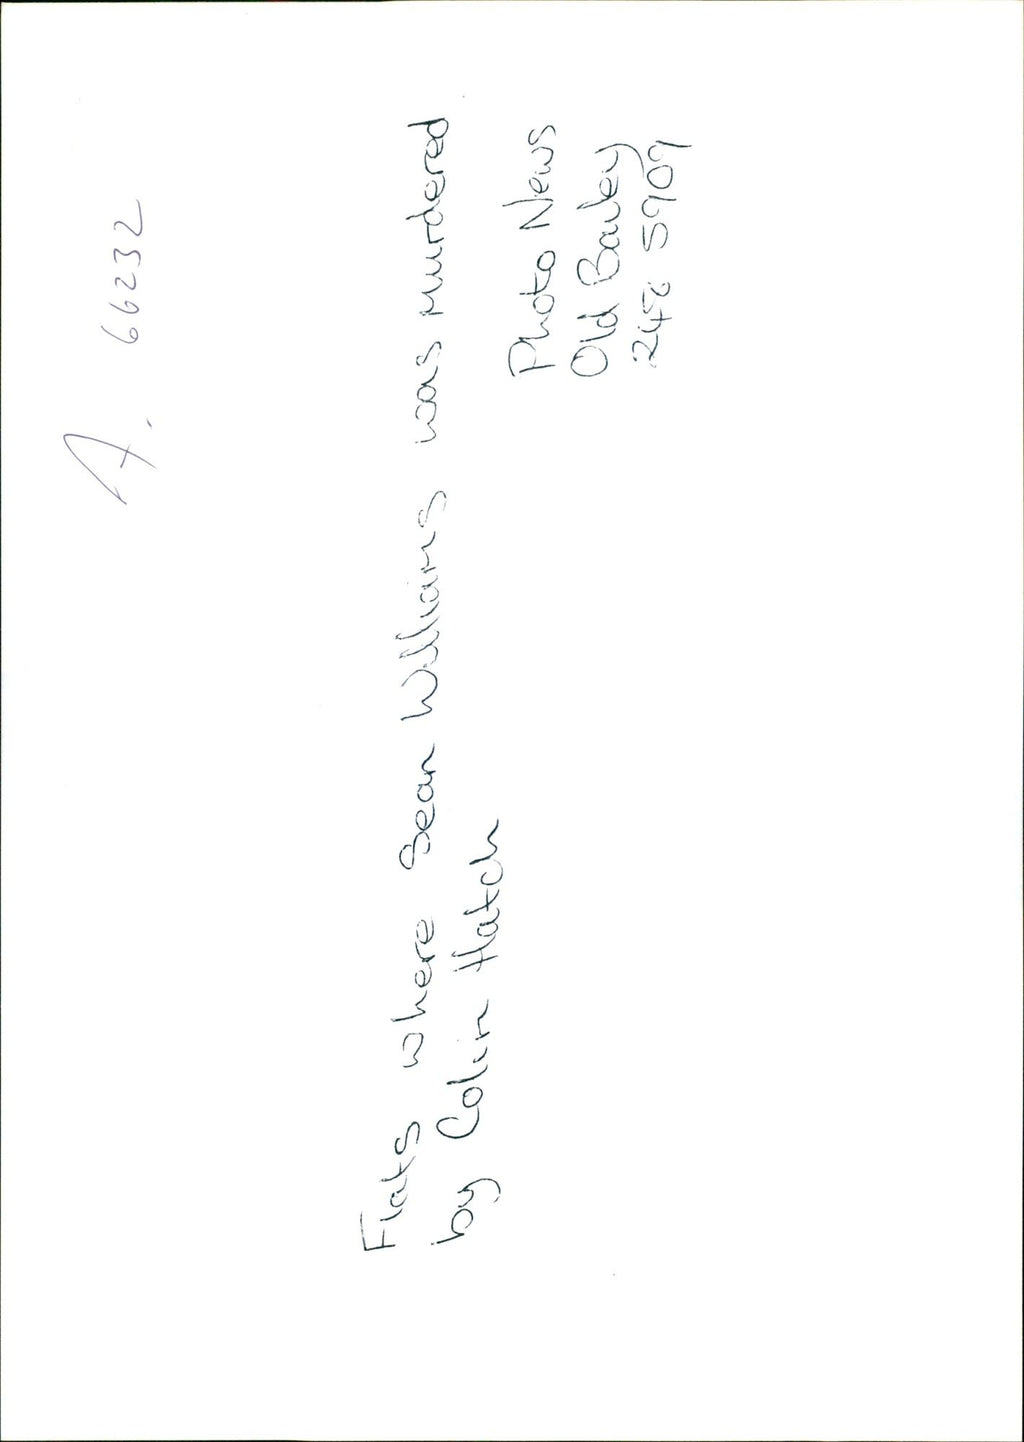 A. 66232
Flats where Sean Williams was murdered
by Colin Hatch
Photo News
Old Bailey
248 5909